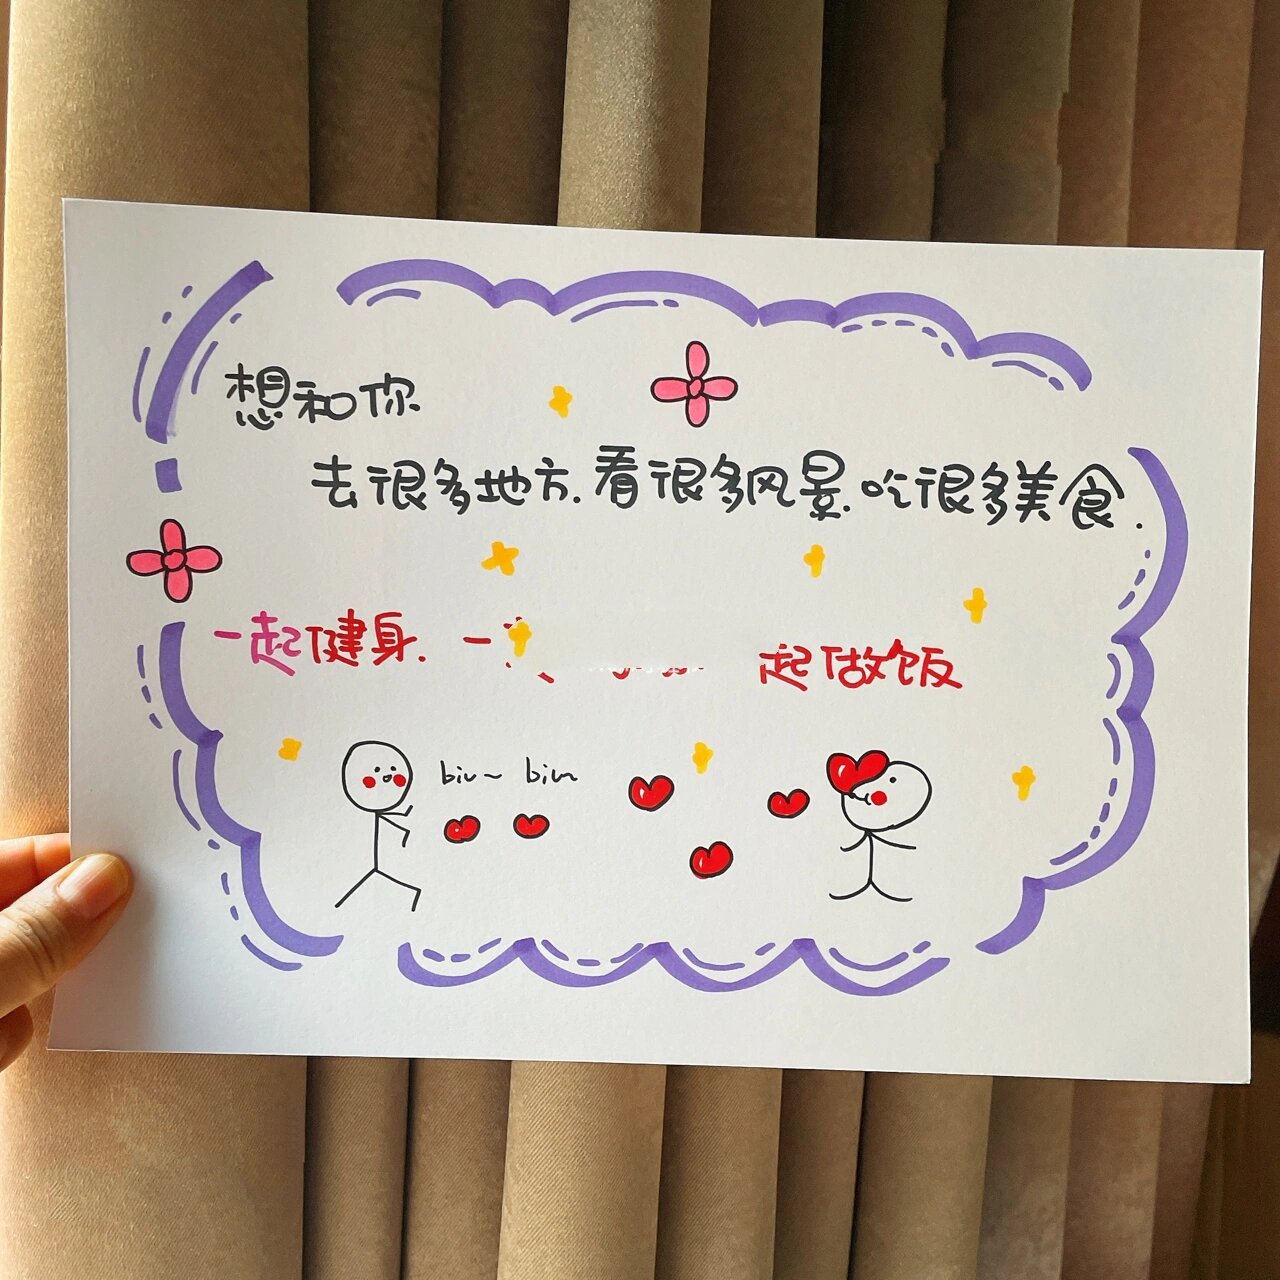 想和你
去很多地方.看很多风景.吃很多美食.
一起健身. 一 起做饭
biu~ biu~